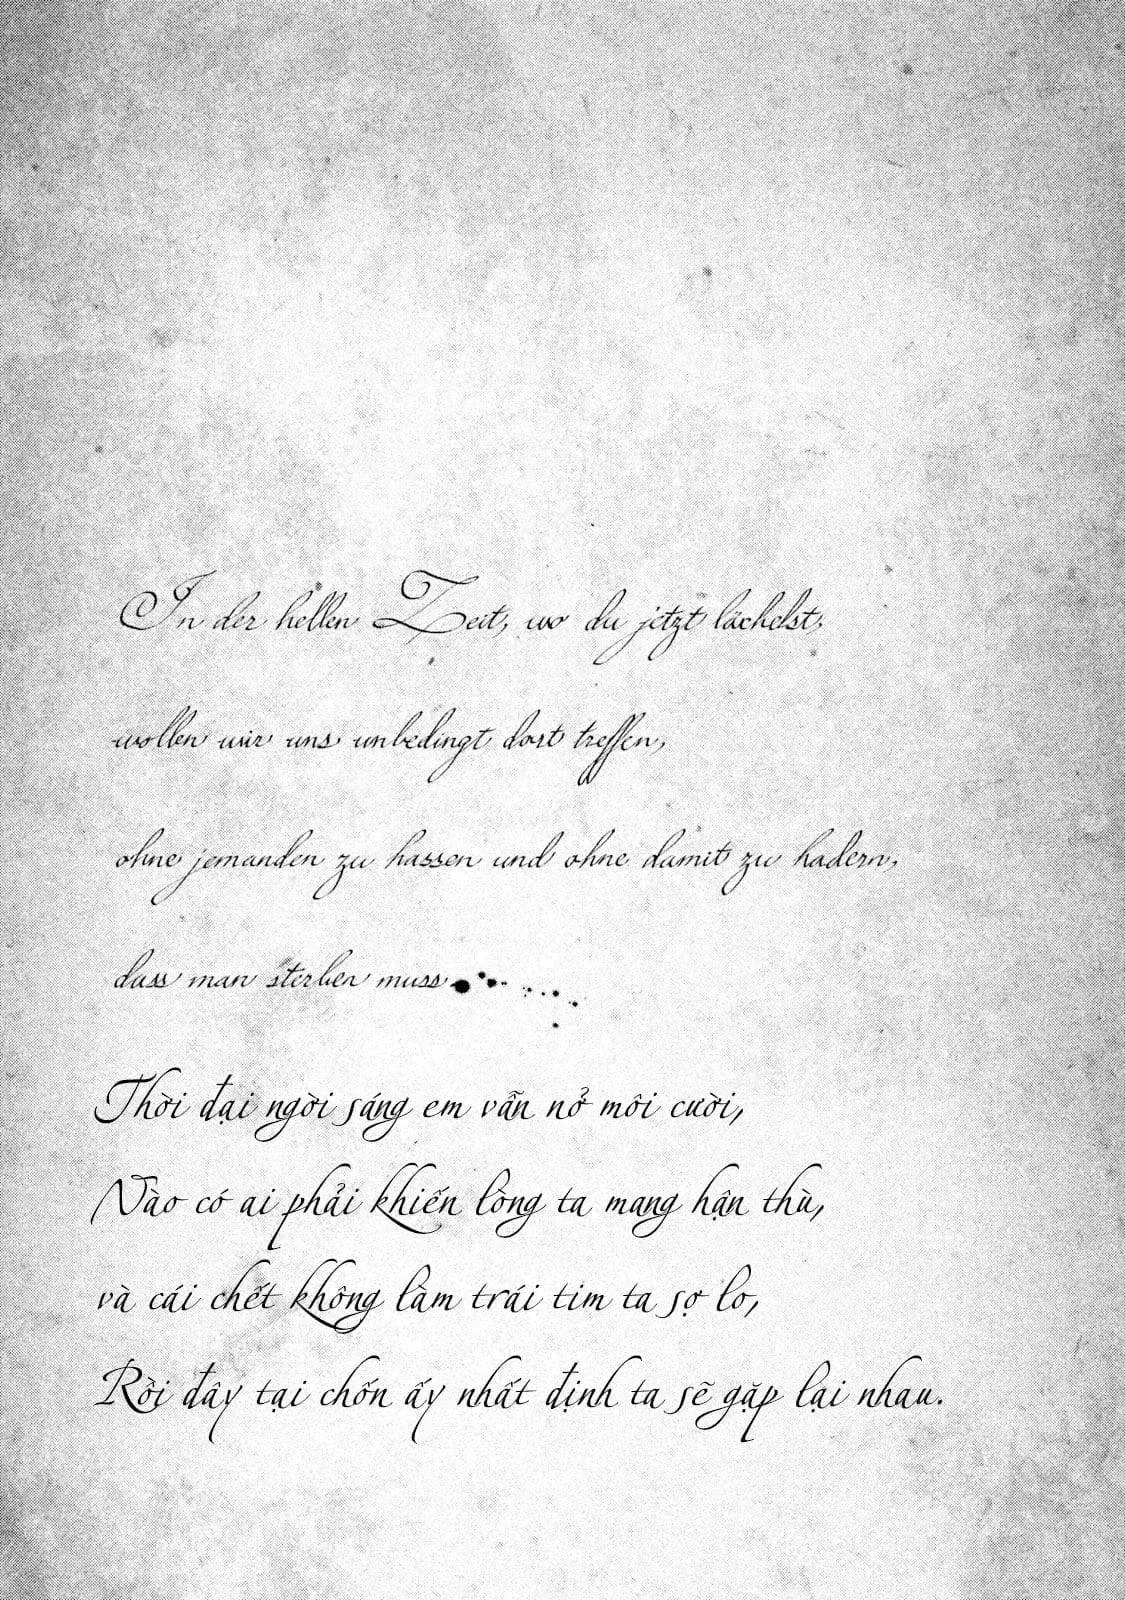 In der hellen Zeit, wo du jetzt lächelst,
wollen wir uns unbedingt dort treffen,
ohne jemanden zu hassen und ohne damit zu hadern,
dass man sterben muss
Thời đại ngời sáng em vẫn nở môi cười,
Nào có ai phải khiến lòng ta mang hận thù,
và cái chết không làm trái tim ta sợ lo,
Rồi đây tại chốn ấy nhất định ta sẽ gặp lại nhau.